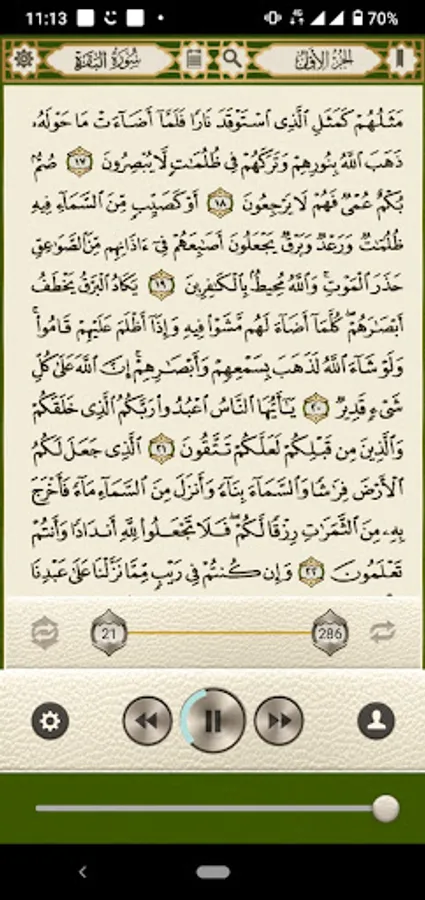 11:13 70%
سُورَةُ البَقَرَةِ الجُزْءُ الأَوَّلُ
مَثَلُهُمْ كَمَثَلِ ٱلَّذِى ٱسْتَوْقَدَ نَارًا فَلَمَّآ أَضَآءَتْ مَا حَوْلَهُۥ
ذَهَبَ ٱللَّهُ بِنُورِهِمْ وَتَرَكَهُمْ فِى ظُلُمَٰتٍ لَّا يُبْصِرُونَ ١٧ صُمٌّۢ
بُكْمٌ عُمْىٌ فَهُمْ لَا يَرْجِعُونَ ١٨ أَوْ كَصَيِّبٍ مِّنَ ٱلسَّمَآءِ فِيهِ
ظُلُمَٰتٌ وَرَعْدٌ وَبَرْقٌ يَجْعَلُونَ أَصَٰبِعَهُمْ فِىٓ ءَاذَانِهِم مِّنَ ٱلصَّوَٰعِقِ
حَذَرَ ٱلْمَوْتِ ۚ وَٱللَّهُ مُحِيطٌۢ بِٱلْكَٰفِرِينَ ١٩ يَكَادُ ٱلْبَرْقُ يَخْطَفُ
أَبْصَٰرَهُمْ ۖ كُلَّمَآ أَضَآءَ لَهُم مَّشَوْا۟ فِيهِ وَإِذَآ أَظْلَمَ عَلَيْهِمْ قَامُوا۟ ۚ
وَلَوْ شَآءَ ٱللَّهُ لَذَهَبَ بِسَمْعِهِمْ وَأَبْصَٰرِهِمْ ۚ إِنَّ ٱللَّهَ عَلَىٰ كُلِّ
شَىْءٍ قَدِيرٌ ٢٠ يَٰٓأَيُّهَا ٱلنَّاسُ ٱعْبُدُوا۟ رَبَّكُمُ ٱلَّذِى خَلَقَكُمْ
وَٱلَّذِينَ مِن قَبْلِكُمْ لَعَلَّكُمْ تَتَّقُونَ ٢١ ٱلَّذِى جَعَلَ لَكُمُ
ٱلْأَرْضَ فِرَٰشًا وَٱلسَّمَآءَ بِنَآءً وَأَنزَلَ مِنَ ٱلسَّمَآءِ مَآءً فَأَخْرَجَ
بِهِۦ مِنَ ٱلثَّمَرَٰتِ رِزْقًا لَّكُمْ ۖ فَلَا تَجْعَلُوا۟ لِلَّهِ أَندَادًا وَأَنتُمْ
تَعْلَمُونَ ٢٢ وَإِن كُنتُمْ فِى رَيْبٍ مِّمَّا نَزَّلْنَا عَلَىٰ عَبْدِنَا
21 286